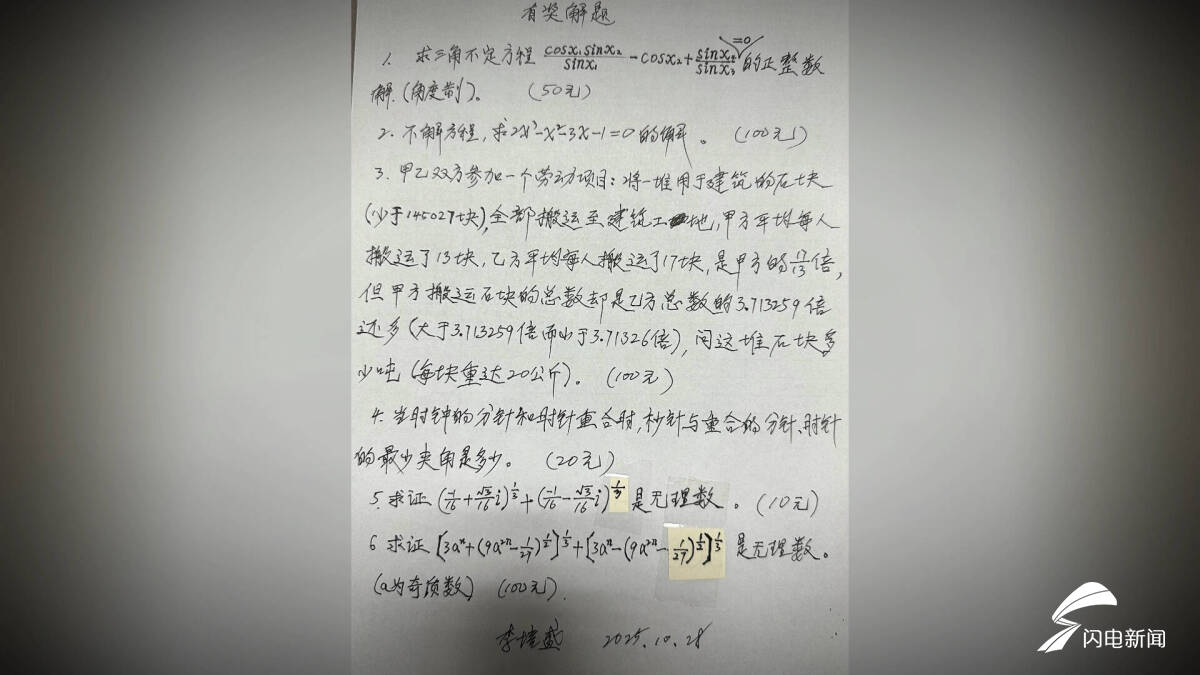 有奖解题
1. 求三角不定方程 cosx₁sinx₂/sinx₁ - cosx₂ + sinx₄/sinx₃ =0 的正整数
解.(角度制)。 (50元)
2. 不解方程,求2x³-x²-3x-1=0的解。 (100元)
3. 甲乙双方参加一个劳动项目:将一堆用于建筑的石块
(少于145027块),全部搬运至建筑工地,甲方平均每人
搬运了13块,乙方平均每人搬运了17块,是甲方的17/13倍,
但甲方搬运石块的总数却是乙方总数的3.713259倍
还多(大于3.713259倍而小于3.71326倍),问这堆石块多
少吨(每块重达20公斤)。 (100元)
4. 当时钟的分针和时针重合时,秒针与重合的分针、时针
的最少夹角是多少。 (20元)
5. 求证 (-1/16+√3/16 i)^1/3+(-1/16-√3/16 i)^1/3 是无理数。 (10元)
6 求证 [3aⁿ+(9a²ⁿ-1/27)^1/2]^1/3+[3aⁿ-(9a²ⁿ-1/27)^1/2]^1/3 是无理数。
(a为奇质数) (100元).
2025.10.28
闪电新闻